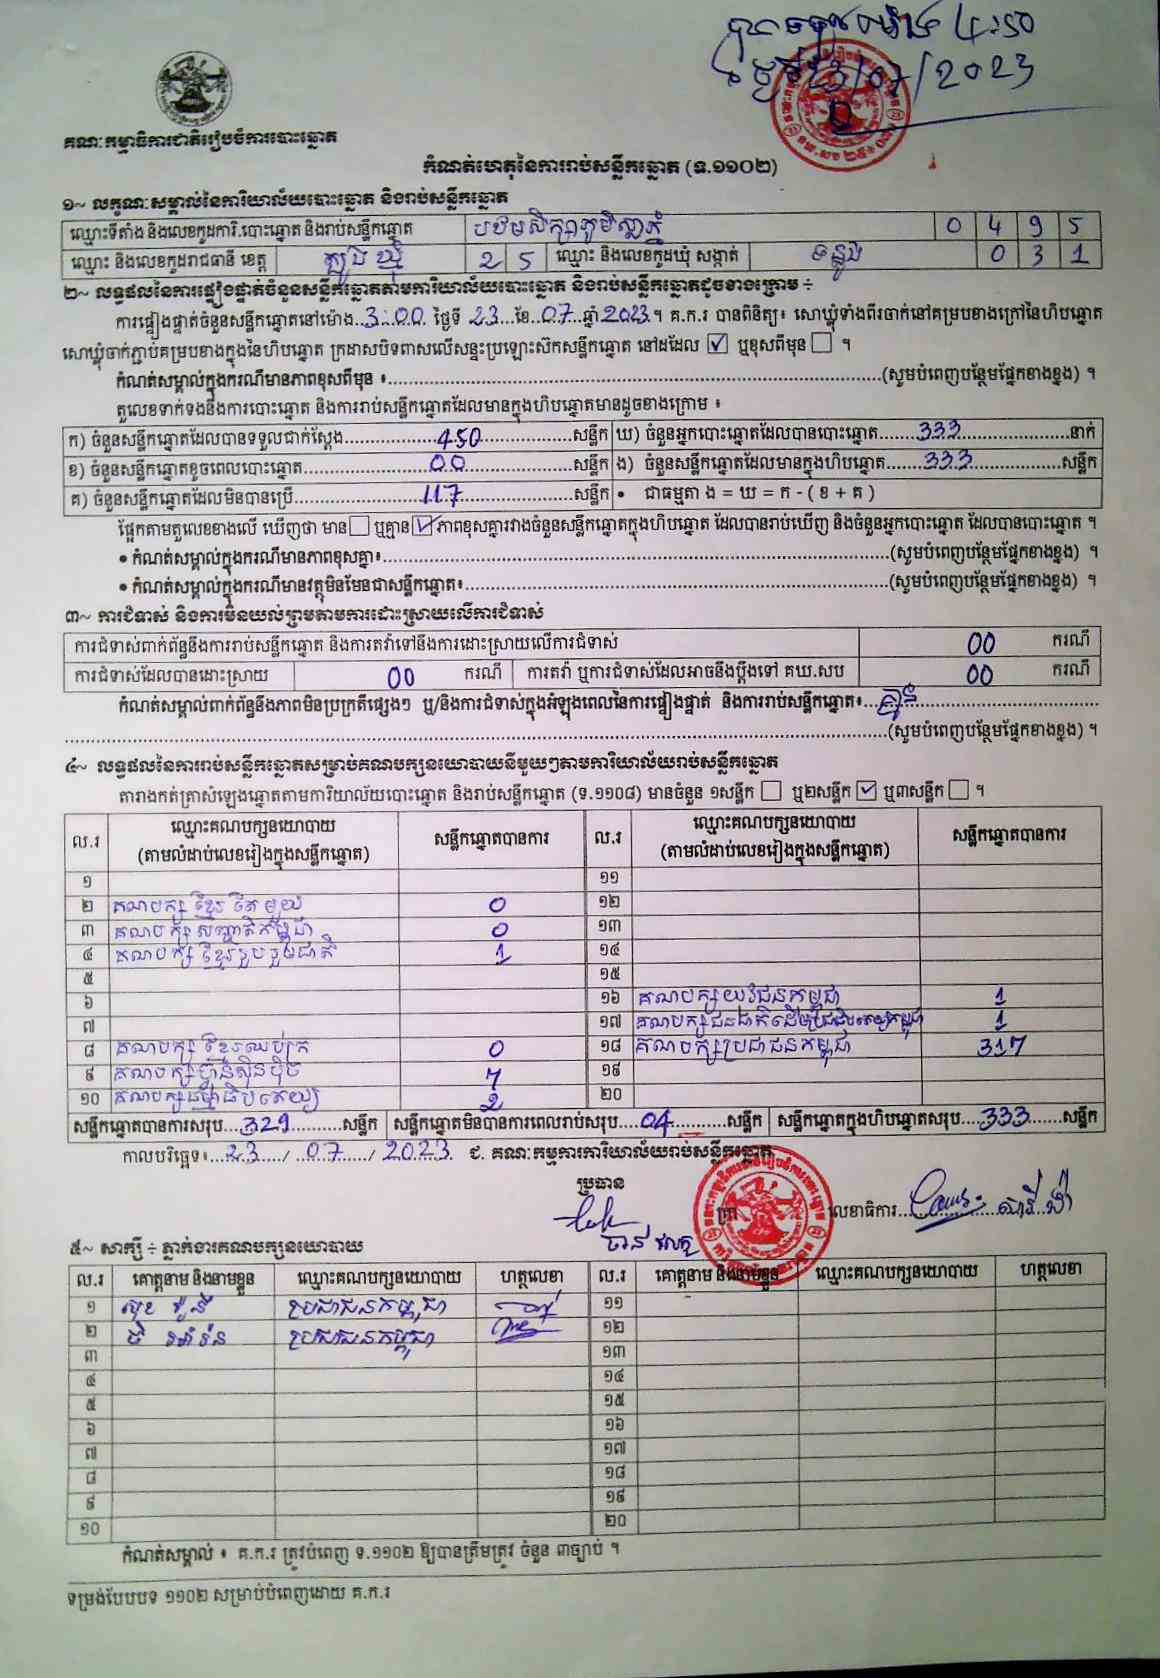 4:50
23/07/2023
គណៈកម្មាធិការជាតិរៀបចំការបោះឆ្នោត
កំណត់ហេតុនៃការរាប់សន្លឹកឆ្នោត (ទ.១១០២)
១~ លក្ខណៈសម្គាល់នៃការិយាល័យបោះឆ្នោត និងរាប់សន្លឹកឆ្នោត
ឈ្មោះទីតាំង និងលេខកូដការិ.បោះឆ្នោត និងរាប់សន្លឹកឆ្នោត បឋមសិក្សាភូមិ 0 4 9 5
ឈ្មោះ និងលេខកូដរាជធានី ខេត្ត ត្បូងឃ្មុំ 2 5 ឈ្មោះ និងលេខកូដឃុំ សង្កាត់ ទន្លូង 0 3 1
២~ លទ្ធផលនៃការផ្ទៀងផ្ទាត់ចំនួនសន្លឹកឆ្នោតតាមការិយាល័យបោះឆ្នោត និងរាប់សន្លឹកឆ្នោតដូចខាងក្រោម ÷
ការផ្ទៀងផ្ទាត់ចំនួនសន្លឹកឆ្នោតនៅម៉ោង..3:00.. ថ្ងៃទី 23...ខែ..07...ឆ្នាំ2023។ គ.ក.រ បានពិនិត្យ៖ សោឃ្លុំទាំងពីរចាក់នៅគម្របខាងក្រៅនៃហិបឆ្នោត
សោឃ្លុំចាក់ភ្ជាប់គម្របខាងក្នុងនៃហិបឆ្នោត ក្រដាសបិទពាសលើសន្ទះប្រឡោះស៊កសន្លឹកឆ្នោត នៅដដែល ☑ ឬខុសពីមុន ☐ ។
កំណត់សម្គាល់ក្នុងករណីមានភាពខុសពីមុន ៖........(សូមបំពេញបន្ថែមផ្នែកខាងខ្នង) ។
តួលេខទាក់ទងនឹងការបោះឆ្នោត និងការរាប់សន្លឹកឆ្នោតដែលមានក្នុងហិបឆ្នោតមានដូចខាងក្រោម ៖
ក) ចំនួនសន្លឹកឆ្នោតដែលបានទទួលជាក់ស្តែង........450........សន្លឹក ឃ) ចំនួនអ្នកបោះឆ្នោតដែលបានបោះឆ្នោត......333........នាក់
ខ) ចំនួនសន្លឹកឆ្នោតខូចពេលបោះឆ្នោត........00........សន្លឹក ង) ចំនួនសន្លឹកឆ្នោតដែលមានក្នុងហិបឆ្នោត......333........សន្លឹក
គ) ចំនួនសន្លឹកឆ្នោតដែលមិនបានប្រើ........117........សន្លឹក • ជាធម្មតា ង = ឃ = ក - ( ខ + គ )
ផ្អែកតាមតួលេខខាងលើ ឃើញថា មាន☐ ឬគ្មាន☑ ភាពខុសគ្នារវាងចំនួនសន្លឹកឆ្នោតក្នុងហិបឆ្នោត ដែលបានរាប់ឃើញ និងចំនួនអ្នកបោះឆ្នោត ដែលបានបោះឆ្នោត ។
• កំណត់សម្គាល់ក្នុងករណីមានភាពខុសគ្នា៖........(សូមបំពេញបន្ថែមផ្នែកខាងខ្នង) ។
• កំណត់សម្គាល់ក្នុងករណីមានវត្ថុមិនមែនជាសន្លឹកឆ្នោត៖........(សូមបំពេញបន្ថែមផ្នែកខាងខ្នង) ។
៣~ ការជំទាស់ និងការមិនយល់ព្រមតាមការដោះស្រាយលើការជំទាស់
ការជំទាស់ពាក់ព័ន្ធនឹងការរាប់សន្លឹកឆ្នោត និងការតវ៉ាទៅនឹងការដោះស្រាយលើការជំទាស់ 00 ករណី
ការជំទាស់ដែលបានដោះស្រាយ 00 ករណី ការតវ៉ា ឬការជំទាស់ដែលអាចនឹងប្តឹងទៅ គឃ.សប 00 ករណី
កំណត់សម្គាល់ពាក់ព័ន្ធនឹងភាពមិនប្រក្រតីផ្សេងៗ ឬ/និងការជំទាស់ក្នុងអំឡុងពេលនៃការផ្ទៀងផ្ទាត់ និងការរាប់សន្លឹកឆ្នោត៖...គ្មាន........
........(សូមបំពេញបន្ថែមផ្នែកខាងខ្នង) ។
៤~ លទ្ធផលនៃការរាប់សន្លឹកឆ្នោតសម្រាប់គណបក្សនយោបាយនីមួយៗតាមការិយាល័យរាប់សន្លឹកឆ្នោត
តារាងកត់ត្រាសំឡេងឆ្នោតតាមការិយាល័យបោះឆ្នោត និងរាប់សន្លឹកឆ្នោត (ទ.១១០៨) មានចំនួន ១សន្លឹក ☐ ឬ២សន្លឹក ☑ ឬ៣សន្លឹក ☐ ។
ល.រ ឈ្មោះគណបក្សនយោបាយ (តាមលំដាប់លេខរៀងក្នុងសន្លឹកឆ្នោត) សន្លឹកឆ្នោតបានការ ល.រ ឈ្មោះគណបក្សនយោបាយ (តាមលំដាប់លេខរៀងក្នុងសន្លឹកឆ្នោត) សន្លឹកឆ្នោតបានការ
១ ១១
២ គណបក្ស ខ្មែរ តែ មួយ 0 ១២
៣ គណបក្ស សញ្ជាតិកម្ពុជា 0 ១៣
៤ គណបក្ស ខ្មែររួបរួមជាតិ 1 ១៤
៥ ១៥
៦ ១៦ គណបក្សយុវជនកម្ពុជា 1
៧ ១៧ គណបក្សជនជាតិដើមប្រជាធិបតេយ្យកម្ពុជា 1
៨ គណបក្ស ខ្មែរឈប់ក្រ 0 ១៨ គណបក្សប្រជាជនកម្ពុជា 317
៩ គណបក្សហ្វ៊ុនស៊ិនប៉ិច 7 ១៩
១០ គណបក្សធម្មាធិបតេយ្យ 2 ២០
សន្លឹកឆ្នោតបានការសរុប...329........សន្លឹក សន្លឹកឆ្នោតមិនបានការពេលរាប់សរុប...04........សន្លឹក សន្លឹកឆ្នោតក្នុងហិបឆ្នោតសរុប...333......សន្លឹក
កាលបរិច្ឆេទ៖...23..../..07..../..2023. ជ. គណៈកម្មការការិយាល័យរាប់សន្លឹកឆ្នោត
ប្រធាន
ត្រា លេខាធិការ
៥~ សាក្សី ÷ ភ្នាក់ងារគណបក្សនយោបាយ
ល.រ គោត្តនាម និងនាមខ្លួន ឈ្មោះគណបក្សនយោបាយ ហត្ថលេខា ល.រ គោត្តនាម និងនាមខ្លួន ឈ្មោះគណបក្សនយោបាយ ហត្ថលេខា
១ ប្រជាជនកម្ពុជា ១១
២ ប្រជាជនកម្ពុជា ១២
៣ ១៣
៤ ១៤
៥ ១៥
៦ ១៦
៧ ១៧
៨ ១៨
៩ ១៩
១០ ២០
កំណត់សម្គាល់ ៖ គ.ក.រ ត្រូវបំពេញ ទ.១១០២ ឱ្យបានត្រឹមត្រូវ ចំនួន ៣ច្បាប់ ។
ទម្រង់បែបបទ ១១០២ សម្រាប់បំពេញដោយ គ.ក.រ